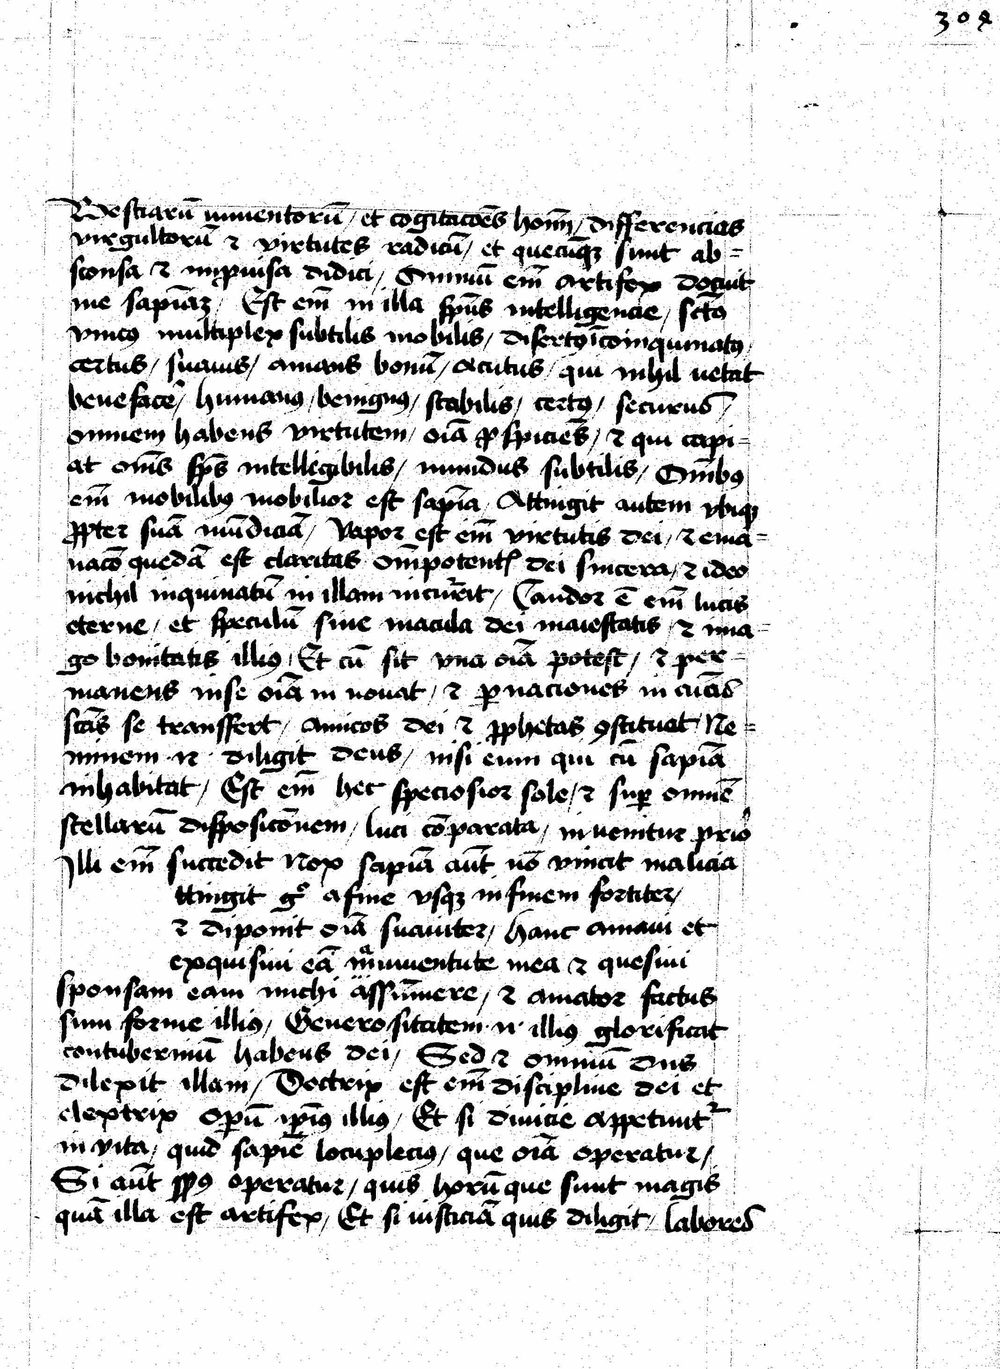 304
Bestiarū iumentorū / et cogitacōēs hoīm / differencias
virgultorū ⁊ virtutes radicū / et quecūqꝫ sunt ab=
sconsa ⁊ improuisa didici / Omniū eīm artifex docuit
me sapiāꝫ / Est eīm in illa spūs intelligencie / sctūs
vnicꝰ multiplex subtilis mobilis / disertꝰ īcoinquinatꝰ
certus / suauis / amans bonū / acutus / qui nihil uetat
beneface / humanꝰ / benignꝰ / stabilis / certꝰ / securus /
omnem habens virtutem / oīa ꝓspiciēs / ⁊ qui capi=
at om̄s spūs intelligibilis / mundus subtilis / Om̄ibꝰ
eīm mobilibꝰ mobilior est sapīa / Attingit autem vbiqꝫ
ꝓpter suā mūdiciā / Vapor est eīm virtutis dei / ⁊ ema=
nacō quedā est claritas om̄ipotentis dei sincera / ⁊ ideo
nichil inquinatū in illam incurrit / Candor ē eīm lucis
eterne / et speculū sine macula dei maiestatis ⁊ ima=
go bonitatis illiꝰ / Et cū sit vna oīa potest / ⁊ per=
manens in se oīa in nouat / ⁊ ꝑ naciones in aīas
scās se transfert / amicos dei ⁊ ꝓphetas ꝯstituat / Ne=
minem n̄ diligit deus / nisi eum qui cū sapīa
inhabitat / Est eīm hec speciosior sole / ⁊ suꝑ omnē
stellarū disposicōnem / luci cōparata / inuenitur prior
Illi eīm succedit nox sapīā aūt nō vincit malicia
ttingit gͦ a fine vsqꝫ in finem fortiter /
⁊ diponit oīa suauiter / hanc amaui et
exquisiui eā a iuuentute mea ⁊ quesiui
sponsam eam michi assūmere / ⁊ amator factus
sum forme illiꝰ / Generositatem n̄ illiꝰ glorificat
contuberniū habens dei / Sed ⁊ omniū dns
dilexit illam / Doctrix est eīm discipline dei et
electrix oꝑū ipsiꝰ illiꝰ / Et si diuicie appetunt᷑
in vita / quid sapīe locupleciꝰ / que oīa operatur /
Si aūt spūs operatur / quis horū que sunt magis
quā illa est artifex / Et si iusticiā quis diligit / labores